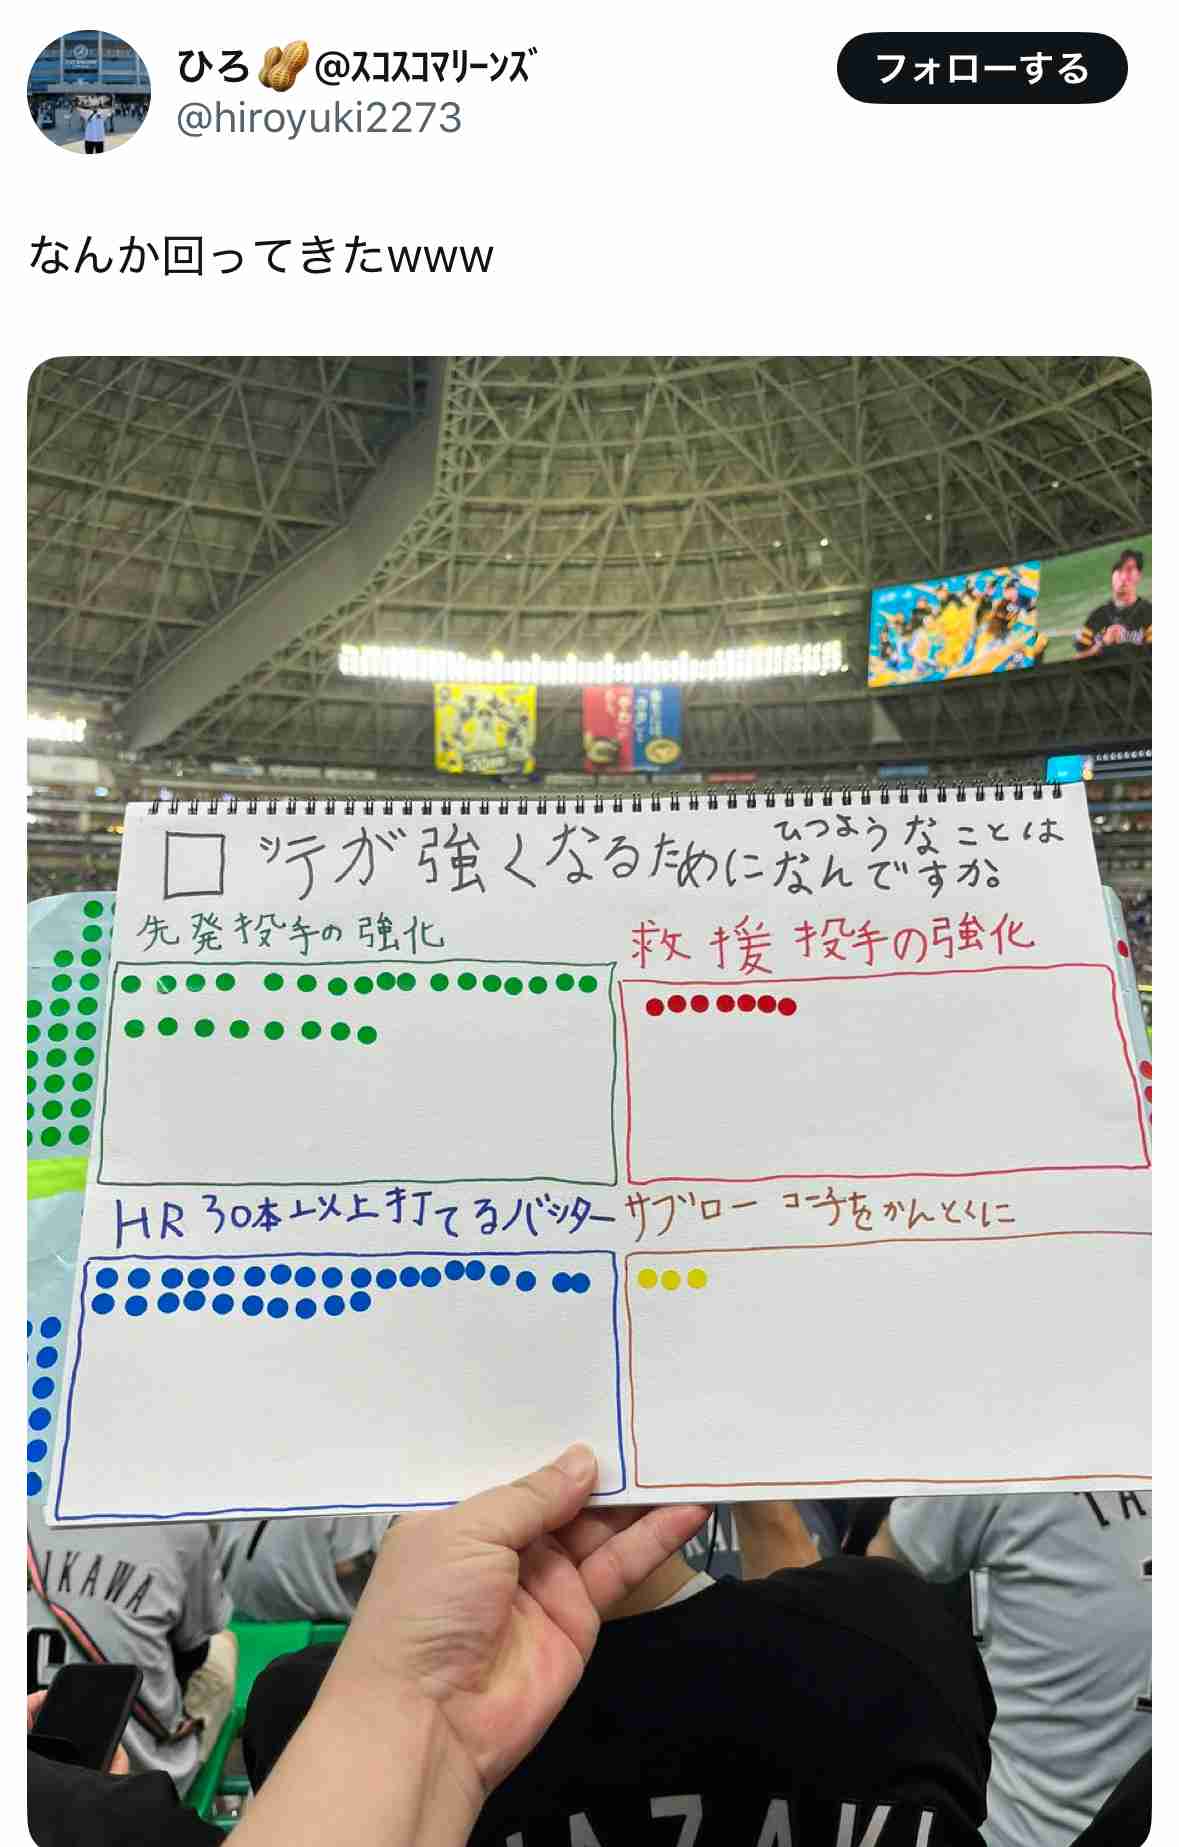 ひろ🥜@ｽｺｽｺﾏﾘｰﾝｽﾞ
@hiroyuki2273
フォローする
なんか回ってきたwww
ロッテが強くなるためにひつようなことは
なんですか。
先発投手の強化
救援投手の強化
HR 30本以上打てるバッター
サブローコーチをかんとくに
IKAWA
AZAKI